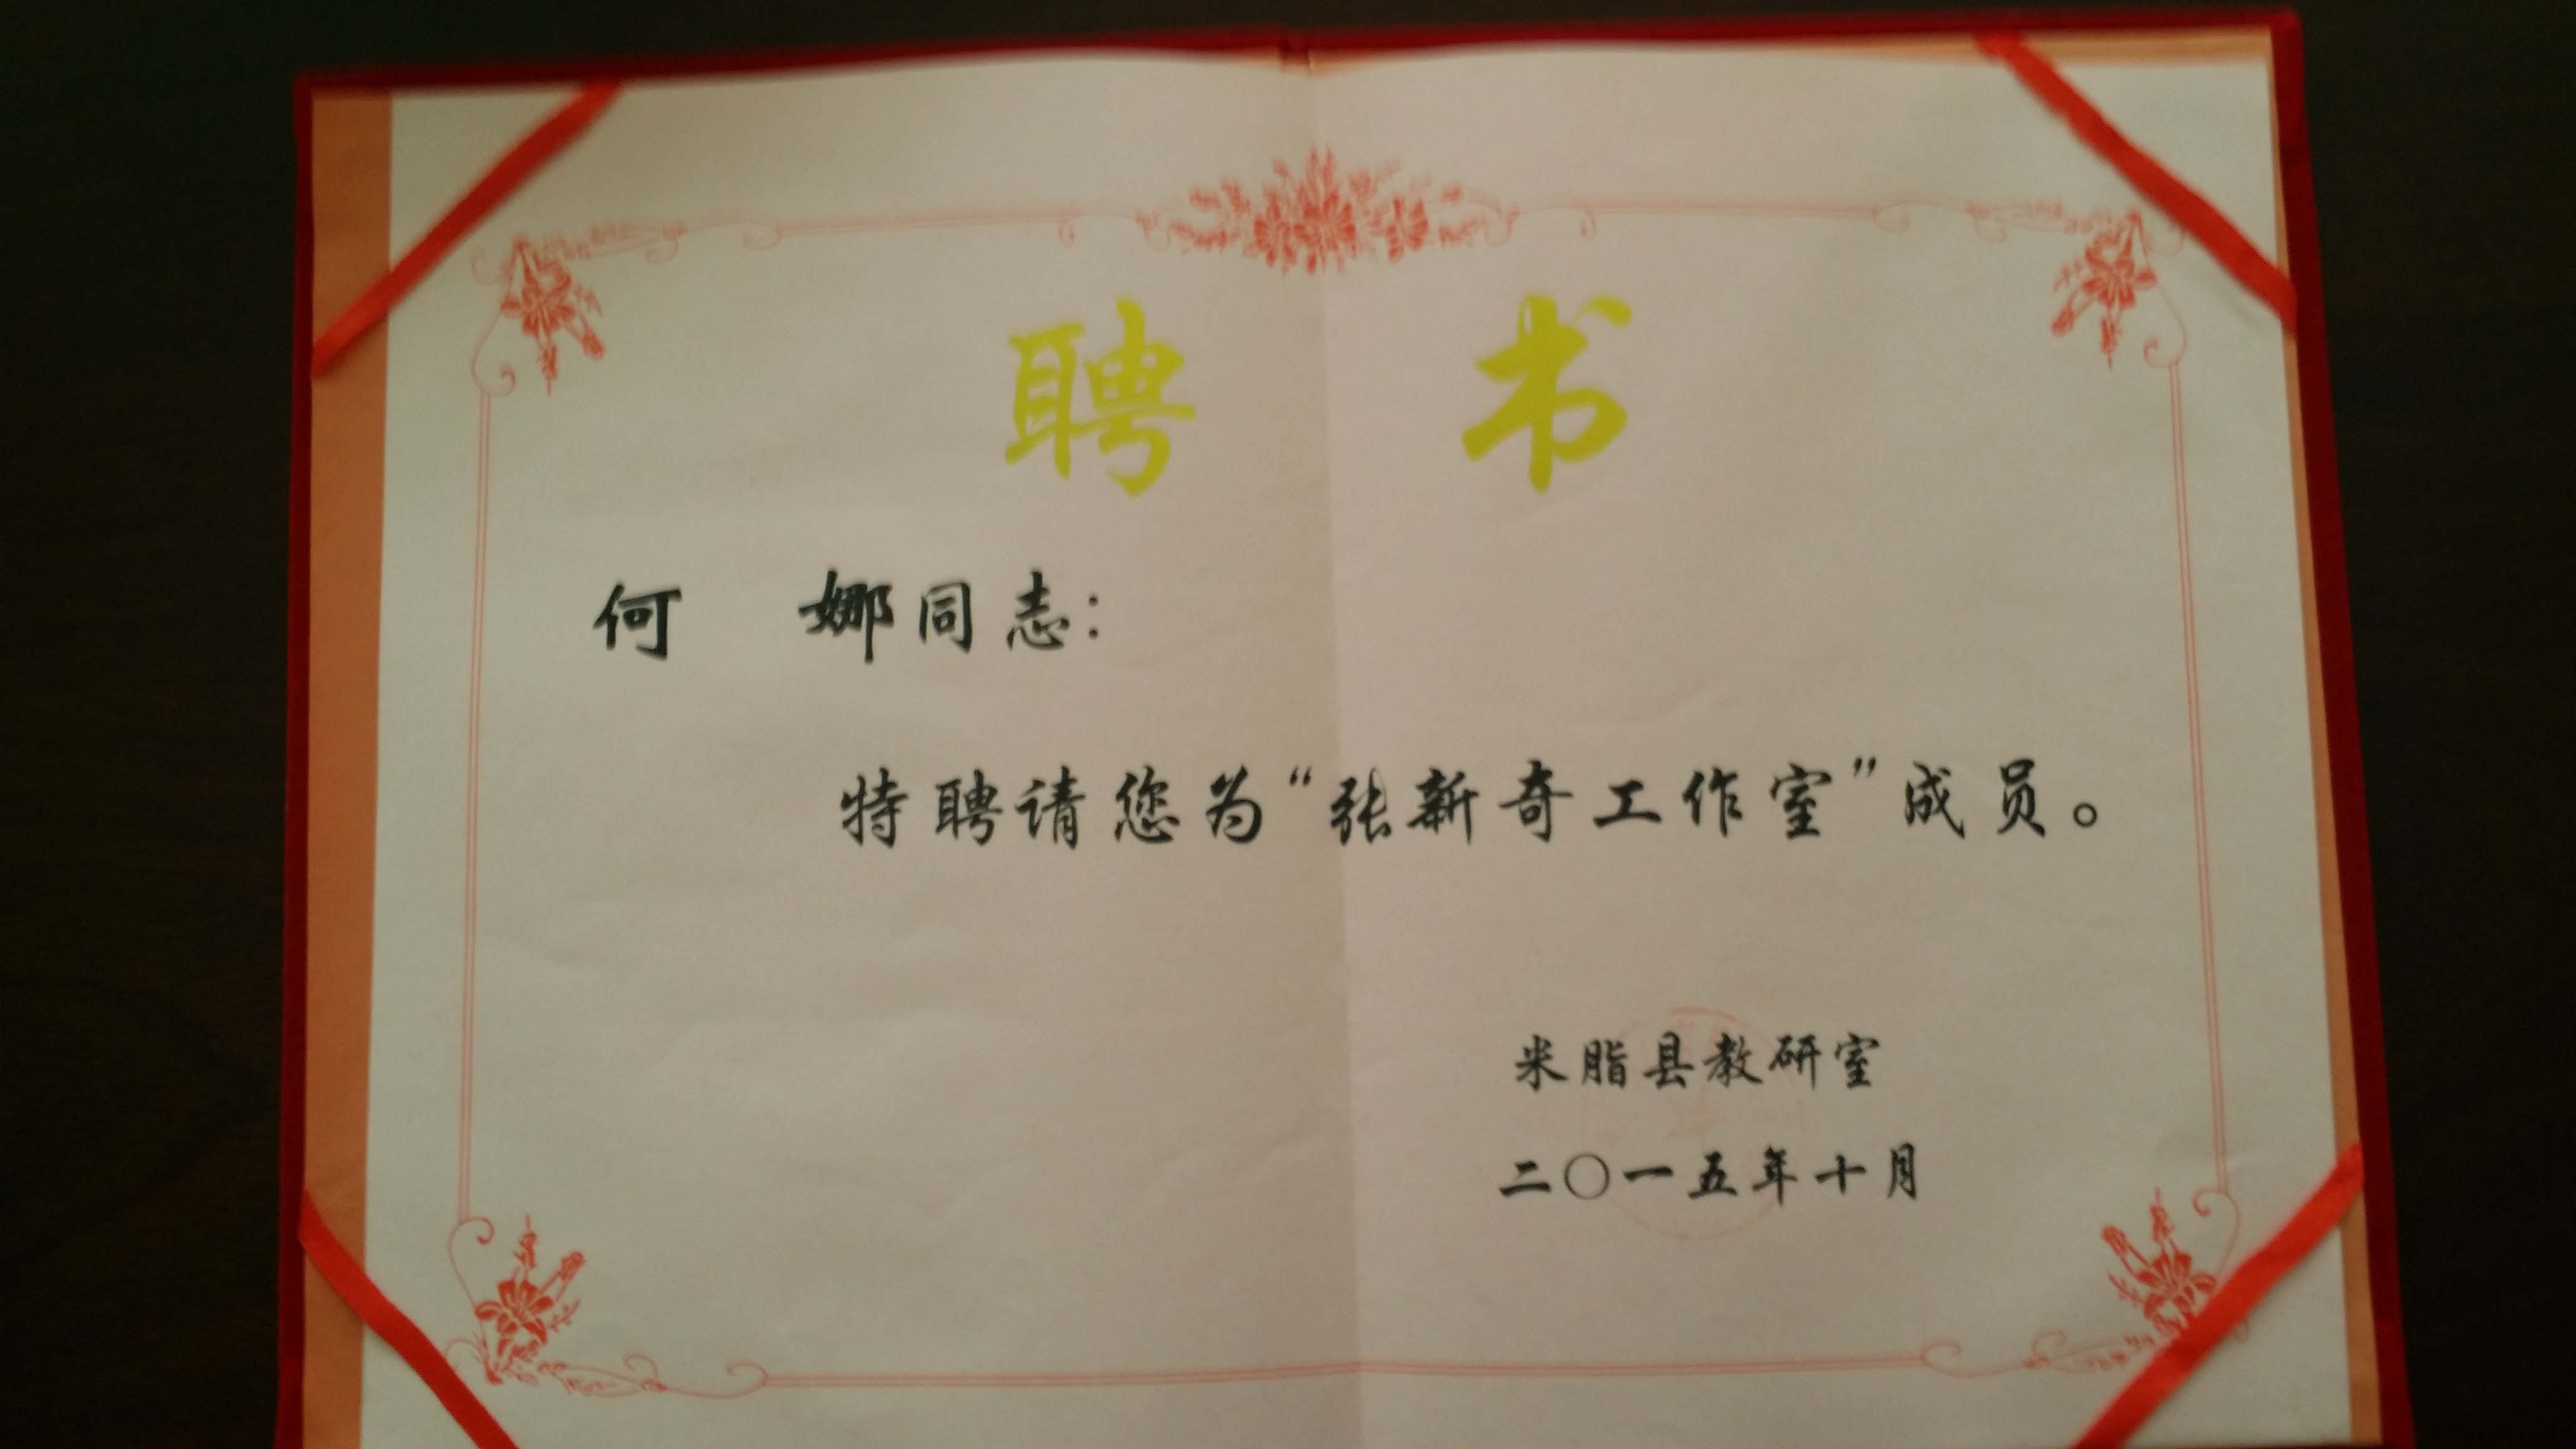 聘 书
何 娜同志：
特聘请您为“张新奇工作室”成员。
米脂县教研室
二〇一五年十月